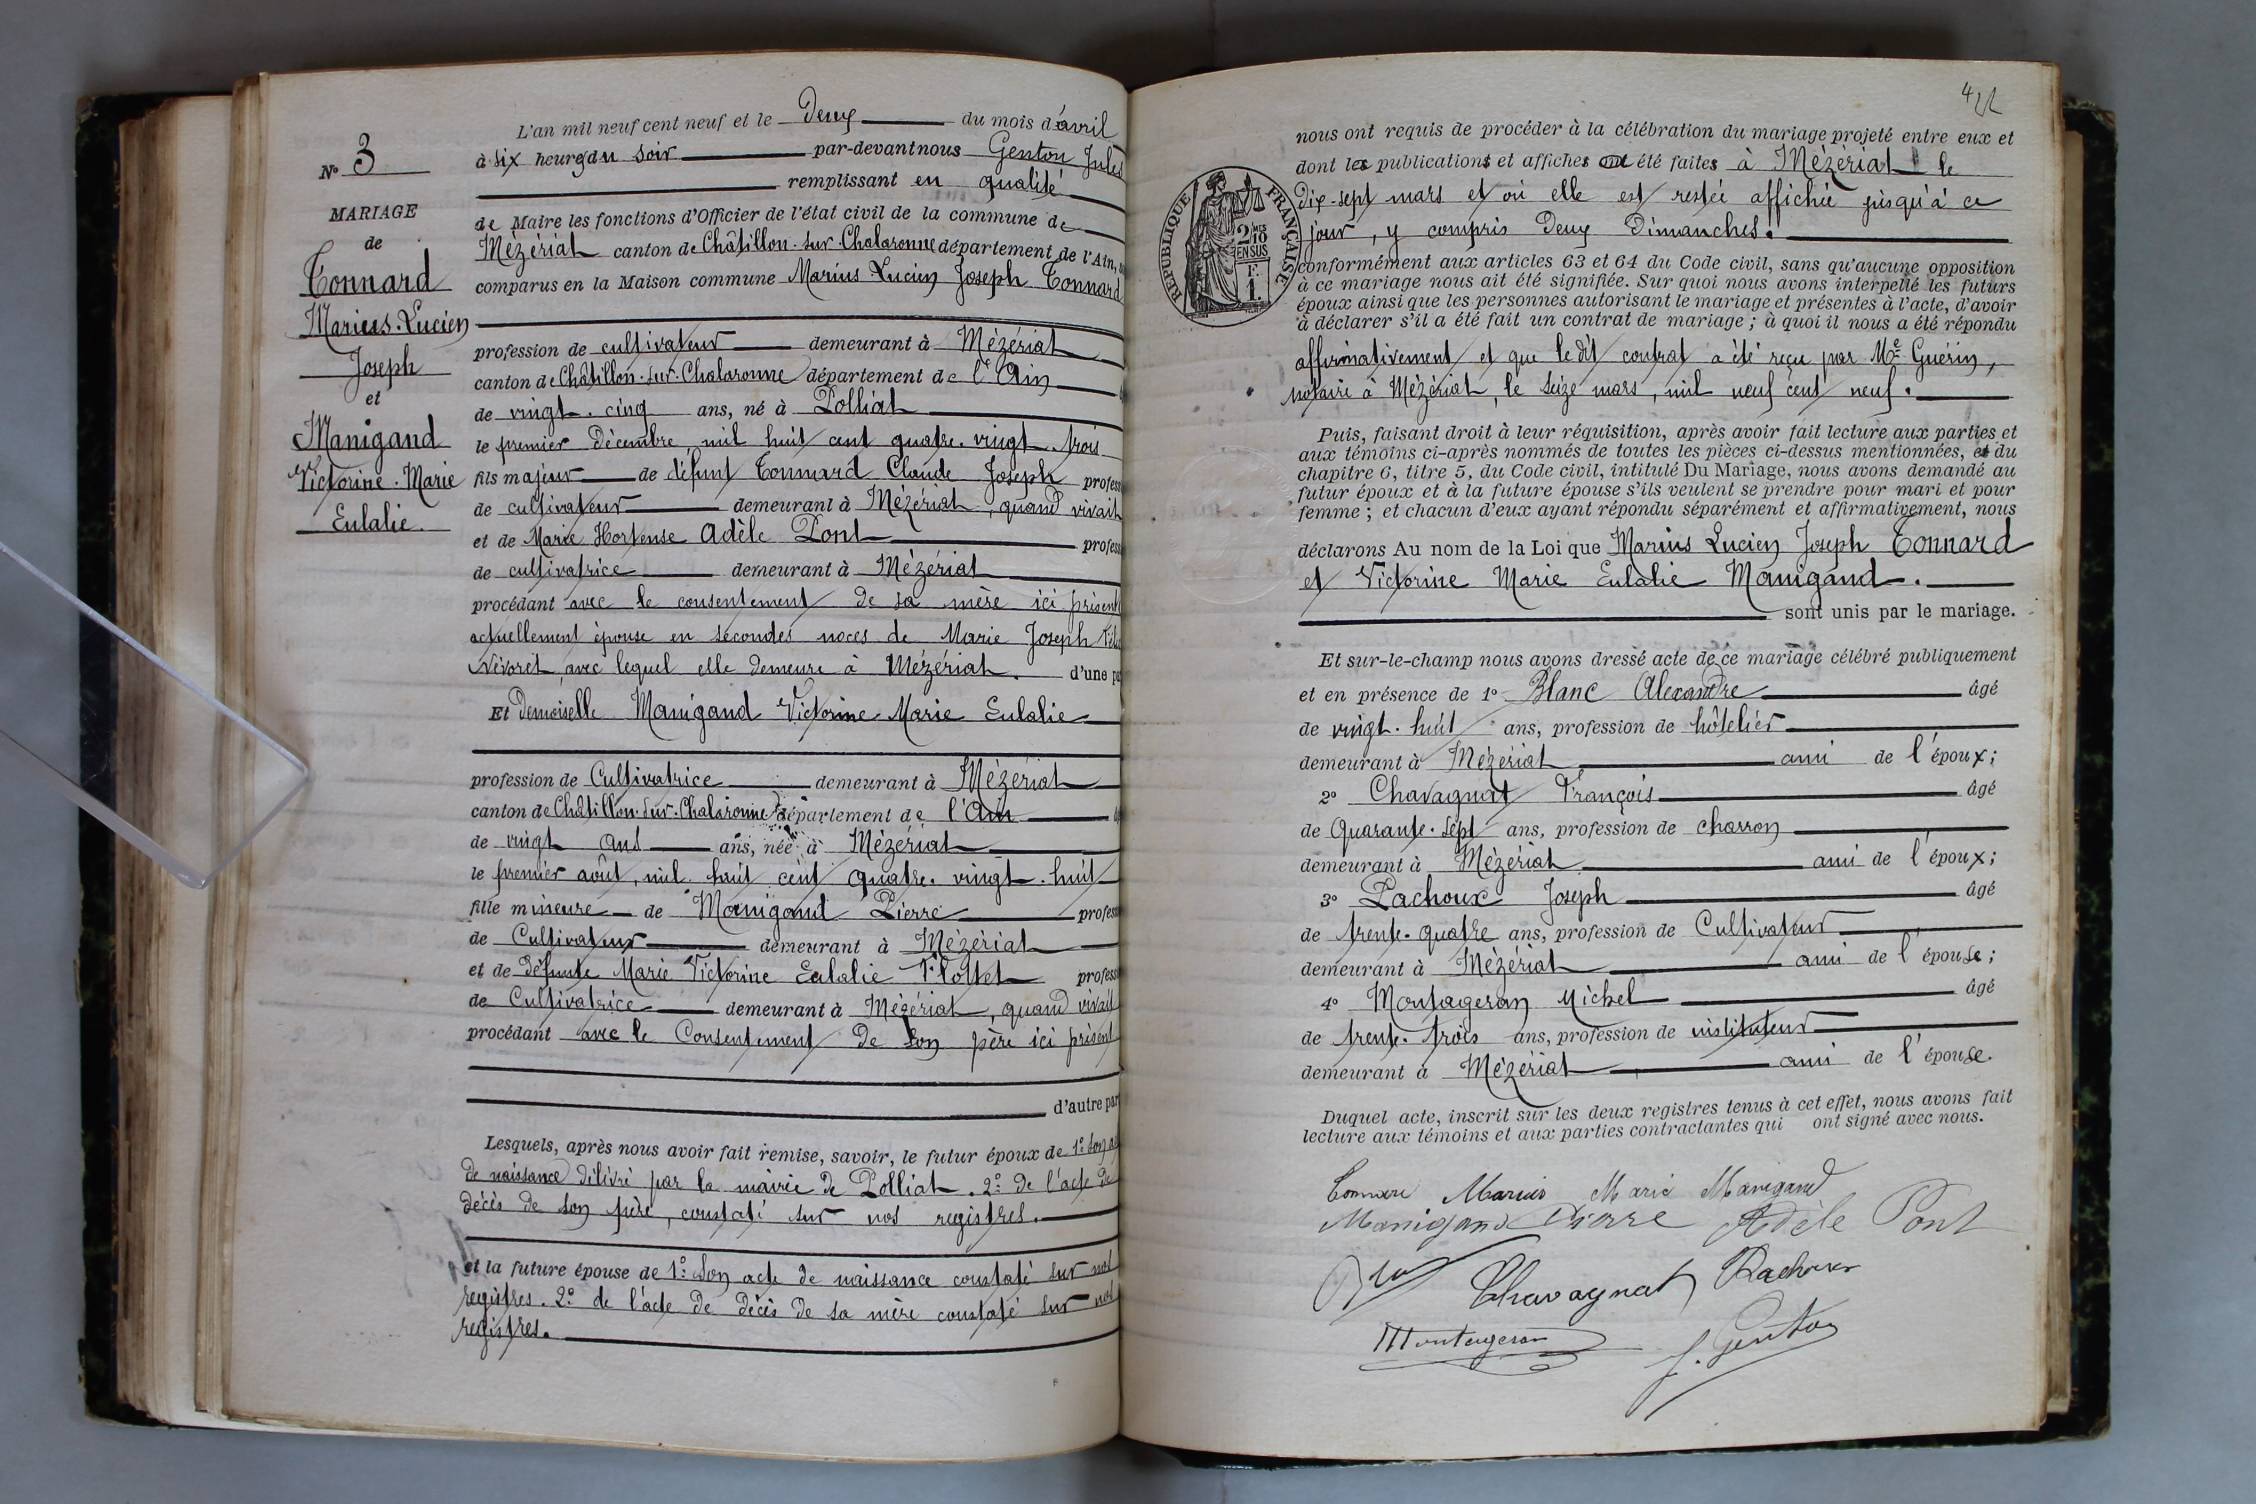 L'an mil neuf cent neuf et le Deux du mois d'avril
N° 3
à six heures du soir par-devant nous Genton Jules
remplissant en qualité
MARIAGE
de
Tonnard
Marius-Lucien
Joseph
et
Manigand
Victorine-Marie
Eulalie
de Maire les fonctions d'Officier de l'état civil de la commune de
Mézériat canton de Châtillon-sur-Chalaronne département de l'Ain,
comparus en la Maison commune Marius Lucien Joseph Tonnard
profession de cultivateur demeurant à Mézériat
canton de Châtillon-sur-Chalaronne département de l'Ain
de vingt-cinq ans, né à Polliat
le premier Décembre mil huit cent quatre-vingt-trois
fils majeur de défunt Tonnard Claude Joseph profess
de cultivateur demeurant à Mézériat, quand vivait
et de Marie Hortense Adèle Pont profess
de cultivatrice demeurant à Mézériat
procédant avec le consentement de sa mère ici présent
actuellement épouse en secondes noces de Marie Joseph
Névoret avec lequel elle demeure à Mézériat. d'une pa
Et Demoiselle Manigand Victorine Marie Eulalie
profession de Cultivatrice demeurant à Mézériat
canton de Châtillon-sur-Chalaronne département de l'Ain
de vingt ans ans, née à Mézériat
le premier août, mil huit cent quatre-vingt-huit
fille mineure de Manigand Pierre profess
de Cultivateur demeurant à Mézériat
et de défunte Marie Victorine Eulalie Flottet profess
de Cultivatrice demeurant à Mézériat, quand vivait
procédant avec le Consentement de son père ici présent
d'autre part
Lesquels, après nous avoir fait remise, savoir, le futur époux de 1° son ac
de naissance délivré par la mairie de Polliat. 2° de l'acte de
décès de son père, constaté sur nos registres.
et la future épouse de 1° son acte de naissance constaté sur nos
registres. 2° de l'acte de décès de sa mère constaté sur nos
registres.
RÉPUBLIQUE FRANÇAISE
2/10 MES
EN SUS
F.
1.
nous ont requis de procéder à la célébration du mariage projeté entre eux et
dont les publications et affiches ont été faites à Mézériat le
dix-sept mars et où elle est restée affichée jusqu'à ce
jour, y compris Deux Dimanches.
conformément aux articles 63 et 64 du Code civil, sans qu'aucune opposition
à ce mariage nous ait été signifiée. Sur quoi nous avons interpellé les futurs
époux ainsi que les personnes autorisant le mariage et présentes à l'acte, d'avoir
à déclarer s'il a été fait un contrat de mariage ; à quoi il nous a été répondu
affirmativement et que le dit contrat a été reçu par Me Guérin,
notaire à Mézériat, le seize mars, mil neuf cent neuf.
Puis, faisant droit à leur réquisition, après avoir fait lecture aux parties et
aux témoins ci-après nommés de toutes les pièces ci-dessus mentionnées, et du
chapitre 6, titre 5, du Code civil, intitulé Du Mariage, nous avons demandé au
futur époux et à la future épouse s'ils veulent se prendre pour mari et pour
femme ; et chacun d'eux ayant répondu séparément et affirmativement, nous
déclarons Au nom de la Loi que Marius Lucien Joseph Tonnard
et Victorine Marie Eulalie Manigand.
sont unis par le mariage.
Et sur-le-champ nous avons dressé acte de ce mariage célébré publiquement
et en présence de 1° Blanc Alexandre âgé
de vingt-huit ans, profession de hôtelier
demeurant à Mézériat ami de l'époux ;
2° Chavagnat François âgé
de Quarante-sept ans, profession de charron
demeurant à Mézériat ami de l'époux ;
3° Pachoux Joseph âgé
de trente-quatre ans, profession de Cultivateur
demeurant à Mézériat ami de l'épouse ;
4° Montageran Michel âgé
de trente-trois ans, profession de instituteur
demeurant à Mézériat ami de l'épouse.
Duquel acte, inscrit sur les deux registres tenus à cet effet, nous avons fait
lecture aux témoins et aux parties contractantes qui ont signé avec nous.
Marius Marie Manigand
Manigand Pierre Adèle Pont
Chavagnat Pachoux
Montageran J. Genton